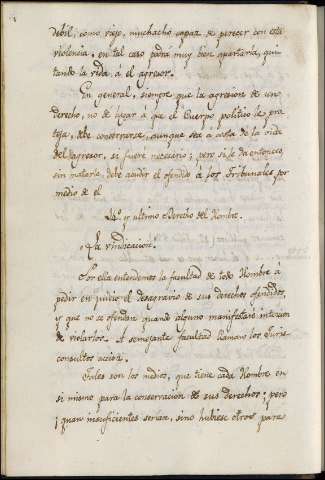 debil, como viejo, muchacho capaz de perecer con esta
violencia, en tal caso podrá muy bien apartarla, qui-
tando la vida á el agresor.
En general, siempre que la agresion de un
derecho, no dé lugar á que el Cuerpo politico le pro-
teja, debe conservarse, aunque sea a costa de la vida
del agresor, si fuere necesario; pero si le da entonces,
sin matarle, debe acudir el ofendido á los Tribunales por
medio de el
14.º y ultimo Derecho del Hombre.
La vindicacion.
Por ella entendemos la facultad de todo Hombre á
pedir en juicio el desagravio de sus derechos ofendidos,
y que no se ofendan quando alguno manifestare intencion
de violarlos. A semejante facultad llaman los Juris-
consultos accion.
Tales son los medios, que tiene cada Hombre en
si mismo para la conservacion de sus derechos; pero
¡quan insuficientes serian, sino hubiese otros para